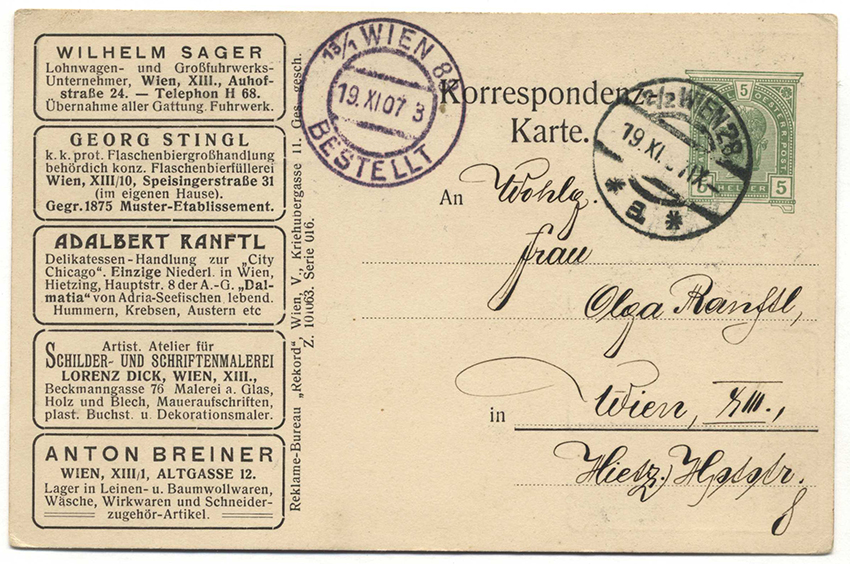 WILHELM SAGER
Lohnwagen- und Großfuhrwerks-
Unternehmer, Wien, XIII., Auhof-
straße 24. — Telephon H 68.
Übernahme aller Gattung. Fuhrwerk.
GEORG STINGL
k. k. prot. Flaschenbiergroßhandlung
behördich konz. Flaschenbierfüllerei
Wien, XIII/10, Speisingerstraße 31
(im eigenen Hause).
Gegr. 1875 Muster-Etablissement.
ADALBERT RANFTL
Delikatessen-Handlung zur „City
Chicago“. Einzige Niederl. in Wien,
Hietzing, Hauptstr. 8 der A.-G. „Dal-
matia“ von Adria-Seefischen lebend.
Hummern, Krebsen, Austern etc
Artist. Atelier für
SCHILDER- UND SCHRIFTENMALEREI
LORENZ DICK, WIEN, XIII.,
Beckmanngasse 76 Malerei a. Glas,
Holz und Blech, Maueraufschriften,
plast. Buchst. u. Dekorationsmaler.
ANTON BREINER
WIEN, XIII/1, ALTGASSE 12.
Lager in Leinen- u. Baumwollwaren,
Wäsche, Wirkwaren und Schneider-
zugehör-Artikel.
Reklame-Bureau „Rekord“, Wien, V., Kriehubergasse 11. Ges. gesch.
Z. 101063. Serie 016.
13/1 WIEN 89
19.XI 07 3
BESTELLT
Korrespondenz-
Karte.
2/2 WIEN 28
19.XI. IX
* a *
5
OESTERR. POST
HELLER 5
An Wohlg.
Frau
Olga Ranftl,
in Wien, XIII.,
Hietz. Hptstr.
8